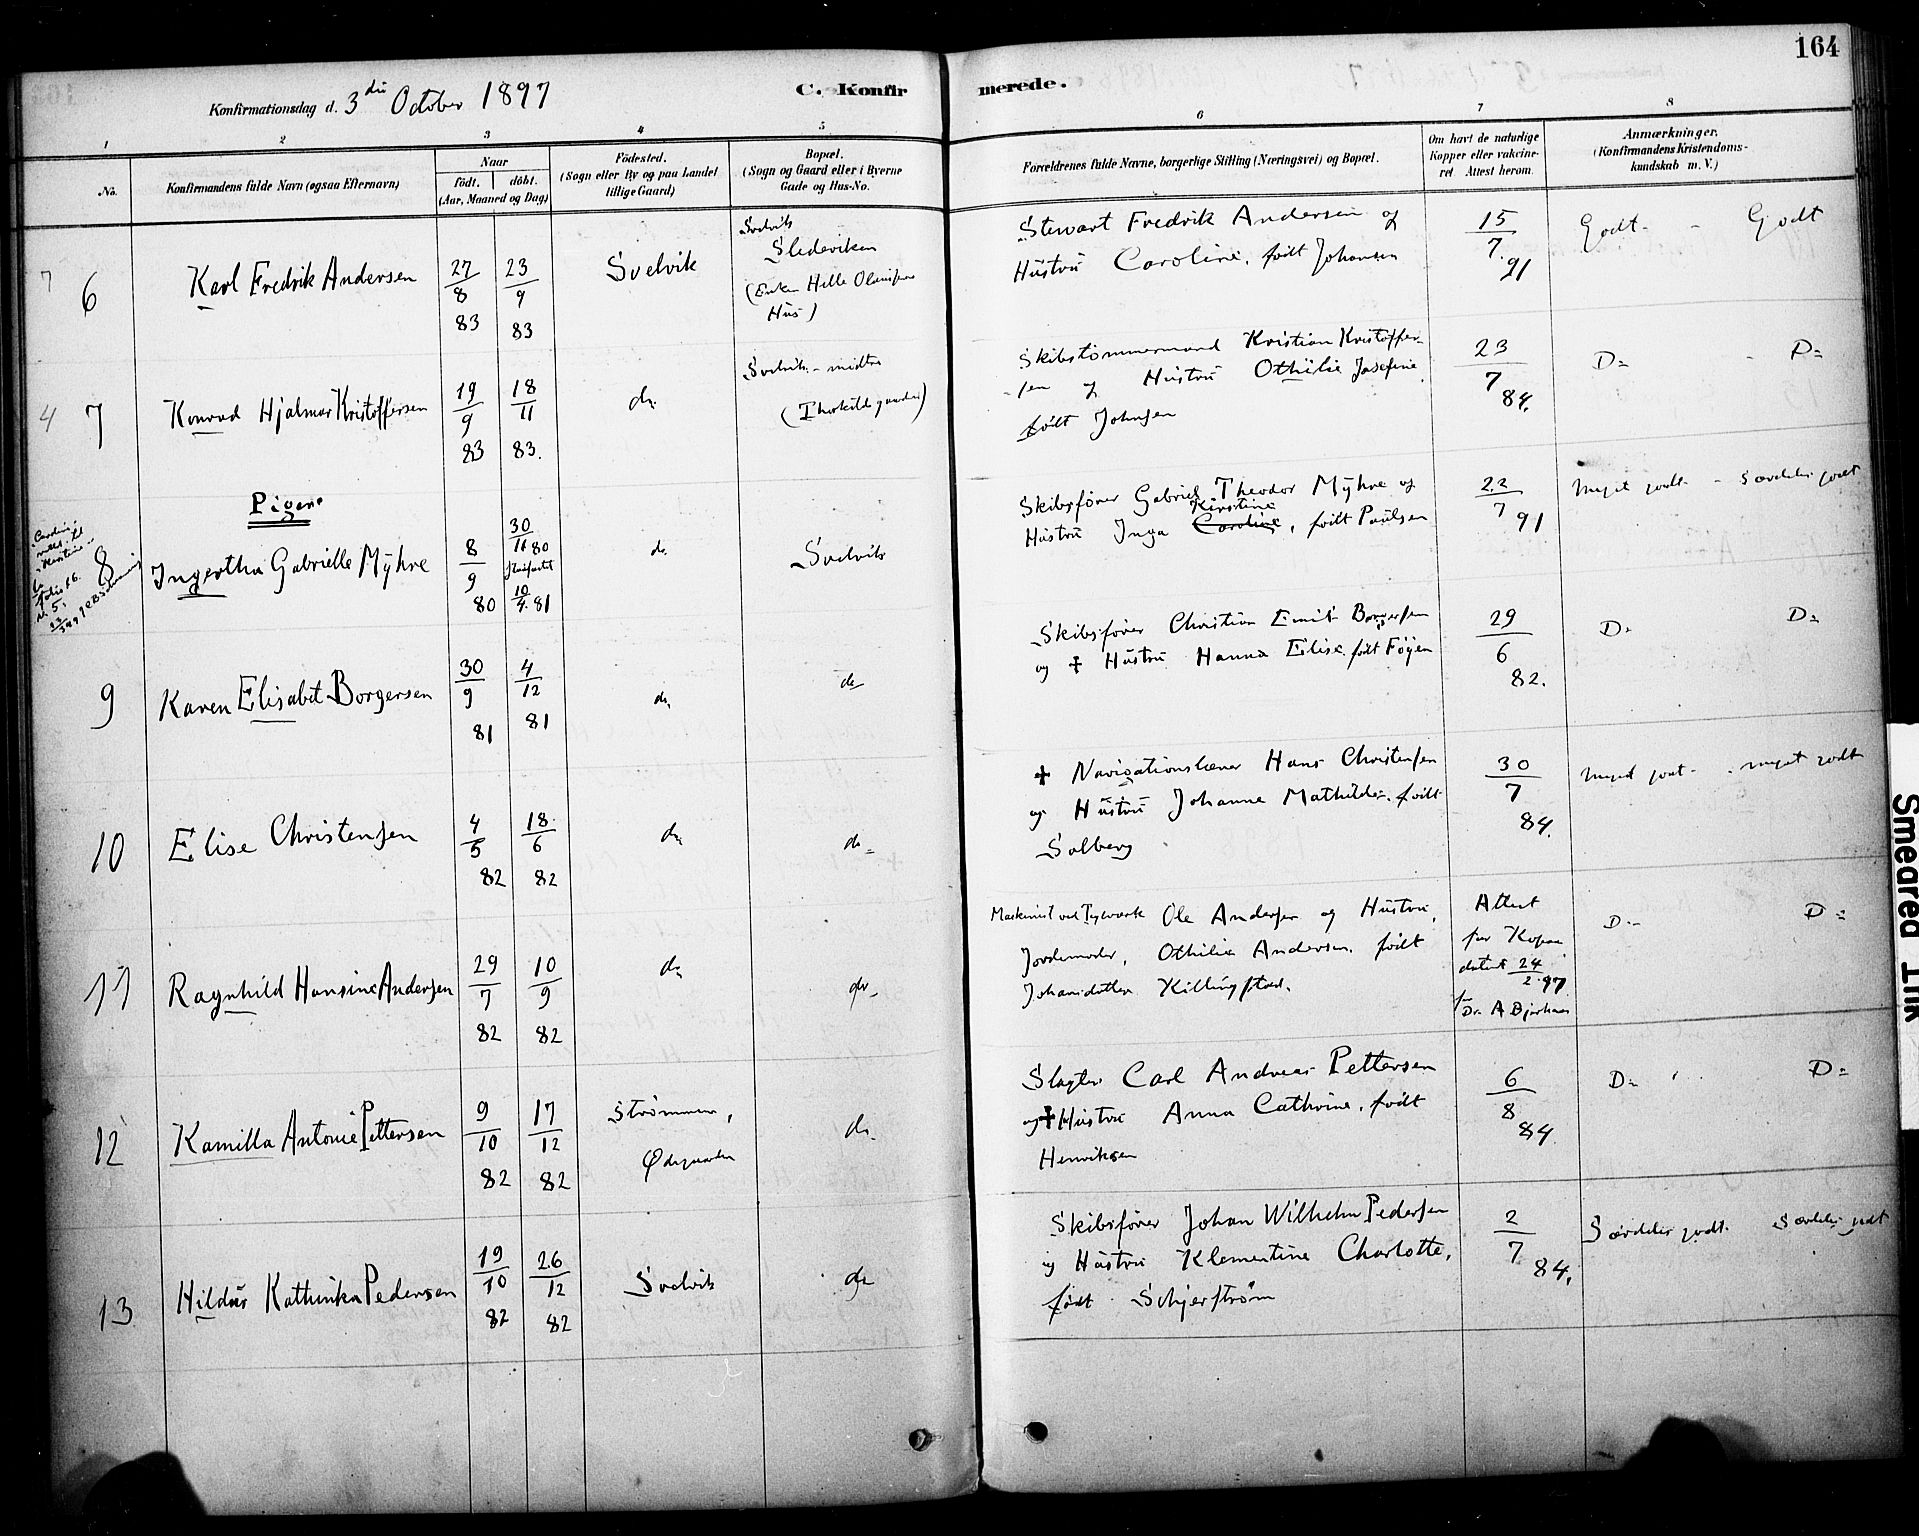 164
Konfirmationsdag d. 3die October 1897
C. Konfirmerede.
1 2 3 4 5 6 7 8
No.
Konfirmandens fulde Navn (ogsaa Efternavn)
Naar
födt. döbt.
(Aar, Maaned og Dag)
Födested.
(Sogn eller By og paa Landet
tillige Gaard)
Bopæl.
(Sogn og Gaard eller i Byerne
Gade og Hus-No.
Forældrenes fulde Navne, borgerlige Stilling (Næringsvei) og Bopæl.
Om havt de naturlige
Kopper eller vakcine-
ret Attest herom.
Anmærkninger.
(Konfirmandens Kristendoms-
kundskab m. V.)
7 6
Karl Fredrik Andersen
27/8 83
23/9 83
Svelvik
Svelvik
Sledeviken
(Enken Helle
Hus)
Stewart Fredrik Andersen og
Hustru Caroline, født Johansen
15/7 91
Godt - Godt
4 7
Konrad Hjalmar Kristoffersen
19/9 83
18/11 83.
do
Svelvik - midtre
Skibstømmermand Kristian Kristoffer-
sen og Hustru Othilie Josefine
født Johnsen
23/7 84.
Do - Do
Pigene
8
Ingertha Gabrielle Mÿhre
8/9 80
30/11 80
10/4 81
do
Svelvik
Skibsfører Gabriel Theodor Mÿhre og
Kirstine
Hustru Inga Caroline, født Paulsen
22/7 91
Meget godt - Særdeles godt
9
Karen Elisabet Borgersen
30/9 81
4/12 81
do
do
Skibsfører Christian Emil Borgersen
og + Hustru Hanna Elise født Føyen
29/6 82.
Do Do
10
Elise Christensen
4/5 82
18/6 82
do
do
+ Navigationslærer Hans Christensen
og Hustru Johanne Mathilde, født
Solberg
30/7 84.
Meget godt - meget godt
11
Ragnhild Hansine Andersen
29/7 82
10/9 82
do
do
Maskinist ved Teglværk Ole Andersen og Hustru,
Jordemoder, Othilie Andersen født
Johansdatter Killingstad.
Attest
for Kopper
dateret 24/2 97
fra Dr. A
Do Do
12
Kamilla Antonie Pettersen
9/10 82
17/12 82
Strømmen,
Ødegaarden
do
Slagter Carl Andreas Pettersen
og + Hustru Anna Cathrine, født
Henriksen
6/8 84
Do Do
13
Hildur Kathinka Pedersen
19/10 82
26/12 82
Svelvik
do
Skibsfører Johan Wilhelm Pedersen
og Hustru Klementine Charlotte,
født Schjerstrøm
2/7 84.
Særdeles godt. Særdeles godt
Smeared Ink